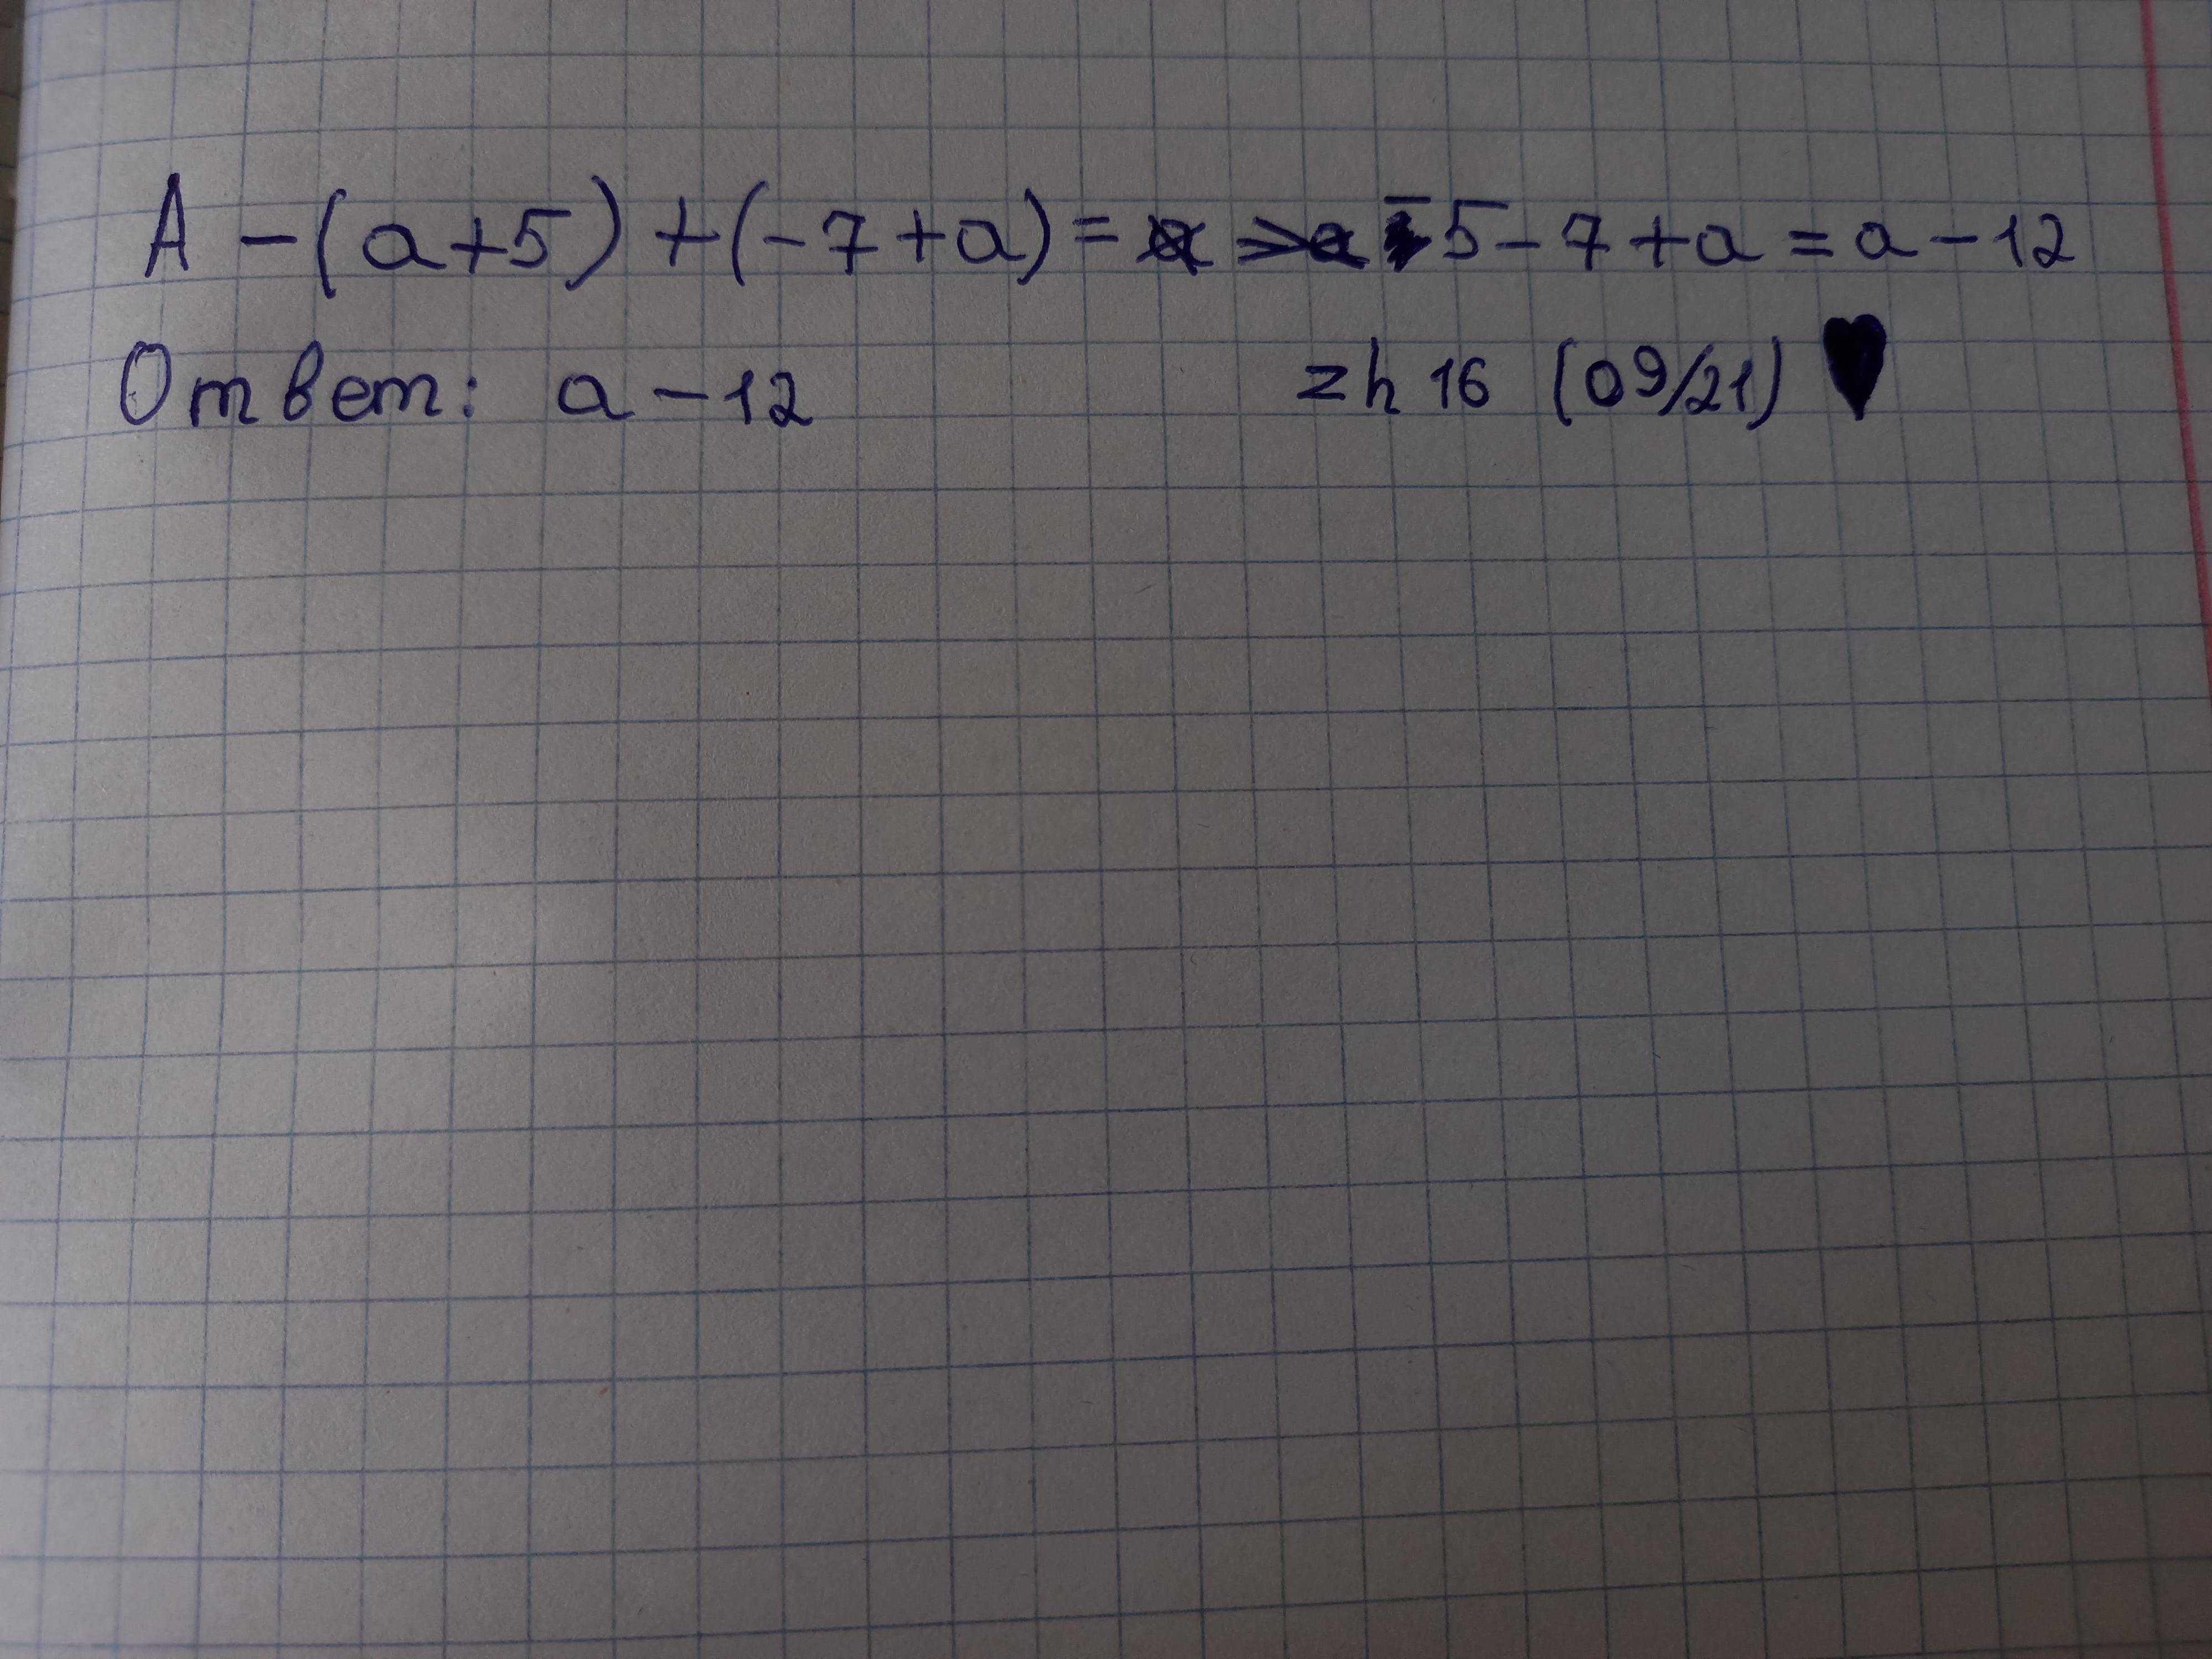 А - (a+5) + (-7+a) = a - a - 5 - 7 + a = a - 12
Ответ: a - 12 zh 16 (09/21)